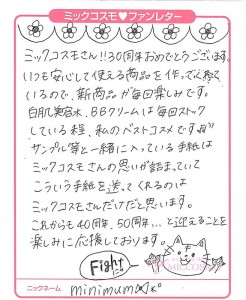 ミックコスモ♥ファンレター
ミックコスモさん!!30周年おめでとうございます。
いつも安心して使える商品を作ってくれて
いるので、新商品が毎回楽しみです。
白肌美容水、BBクリームは毎回ストック
している程、私のベストコスメです
サンプル等と一緒に入っている手紙は
ミックコスモさんの思いが詰まっていて
こういう手紙を送ってくれるのは
ミックコスモさんだけだと思います。
これからも40周年、50周年…と迎えることを
楽しみに応援しております。
Fight!!
ニックネーム minimum